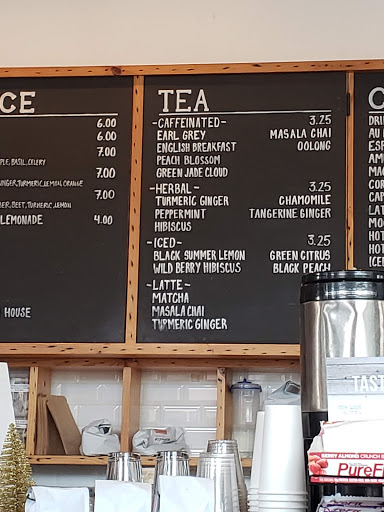 CE
6.00
6.00
7.00
PLE, BASIL, CELERY
7.00
INGER, TURMERIC, LEMON, ORANGE
7.00
BER, BEET, TURMERIC, LEMON
LEMONADE 4.00
HOUSE
TEA
-CAFFEINATED- 3.25
EARL GREY MASALA CHAI
ENGLISH BREAKFAST OOLONG
PEACH BLOSSOM
GREEN JADE CLOUD
-HERBAL- 3.25
TURMERIC GINGER CHAMOMILE
PEPPERMINT TANGERINE GINGER
HIBISCUS
-ICED- 3.25
BLACK SUMMER LEMON GREEN CITRUS
WILD BERRY HIBISCUS BLACK PEACH
-LATTE-
MATCHA
MASALA CHAI
TURMERIC GINGER
C
DRI
AU
ESP
AM
MAC
COR
CAP
LAT
MO
HOT
HOT
ICE
TAST
BERRY ALMOND CRUNCH
PureFi